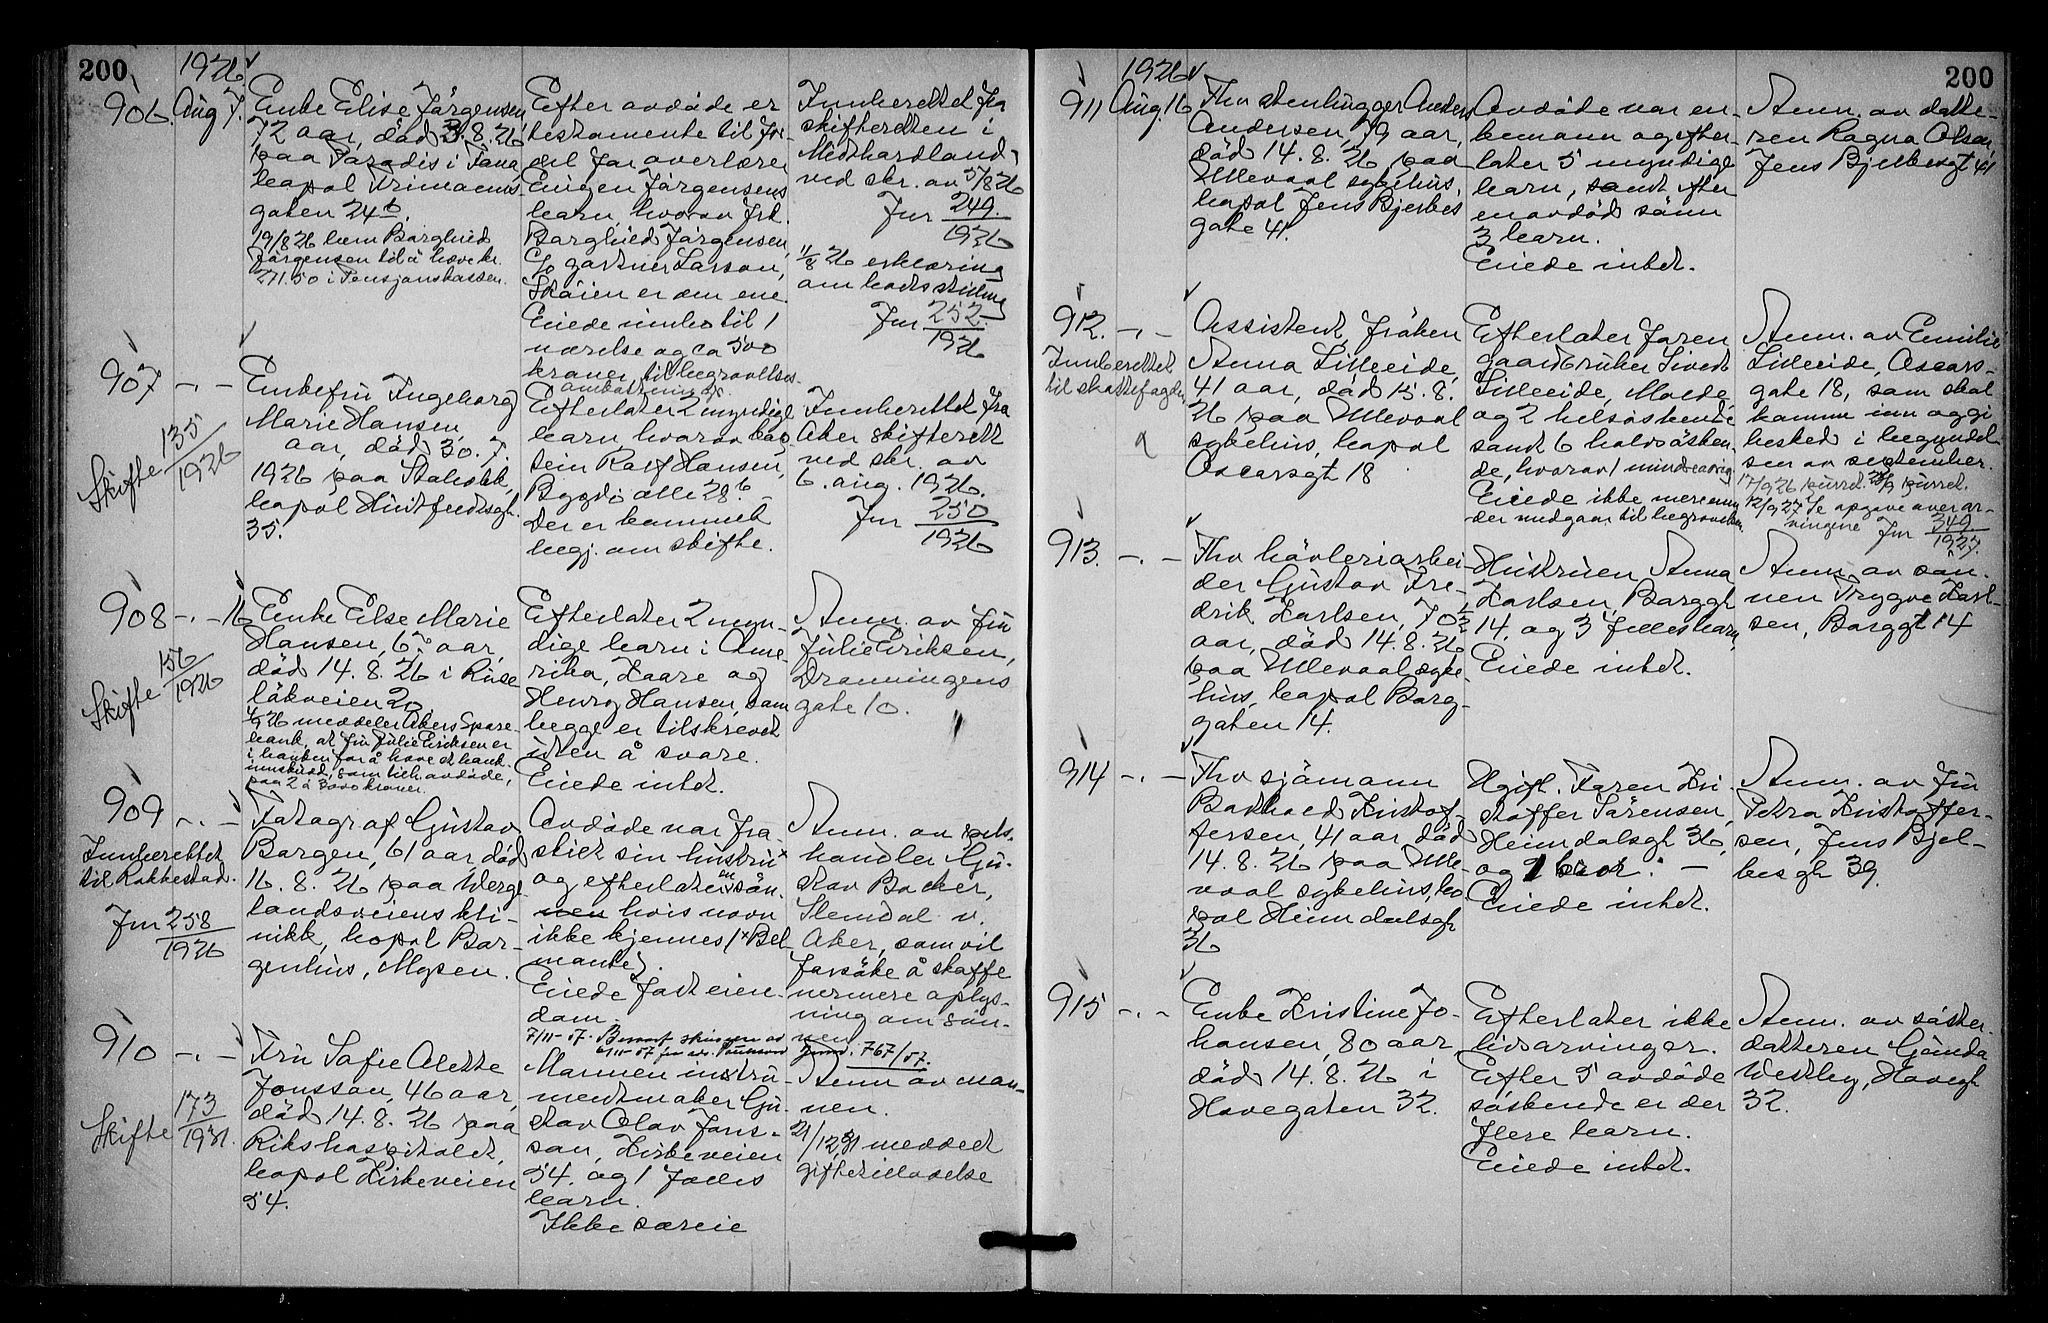 200
1926
906. Aug 7. Enke Elise Jörgensen
72 aar, död 3.8.26
paa Paradis i Fana
bopæl Trimanns-
gaten 24b.
19/8 26 kom Borghild
Jörgensen til å hæve kr.
271.50 i Pensjonskassen.
Efter avdöde er
testamente til for-
del for overlærer
Eugen Jörgensens
barn, hvorav frk.
Borghild Jörgensen,
c/o gartner Larson,
Sköien er den ene.
Eiede innbo til 1
værelse og ca 500
kroner til begravelses-
omkostninger.
Innberettet fra
skifteretten i
Midthordland
ved skr. av 5/8 26
Jnr 249
1926
11/8 26 erklæring
om bodsstilling
Jnr 252
1926
907 -„- Enkefru Ingeborg
Marie Hansen
aar, död 30.7.
1926 paa Stabekk,
bopæl Huitfeldtsgt.
35.
Skifte 135
1926
Efterlater 2 myndige
barn hvorav kap-
tein Rolf Hansen,
Bygdö alle 28b.
Der er kommet
begj. om skifte.
Innberettet fra
Aker skifterett
ved skr. av
6. aug. 1926.
Jnr 250
1926
908 -„- 16 Enke Else Marie
Hansen, 67 aar,
död 14.8.26 i Ruse-
lökveien 20
4/9 26 meddeler Akers Spare-
bank, at fru Julie Eriksen er
i banken for å hæve et bank-
innskudd, som tilh. avdöde,
paa 2 à 3000 kroner.
Skifte 156
1926
Efterlater 2 myn-
dige barn i Ame-
rika, Kaare og
Henry Hansen, som
begge er tilskrevet
uten å svare.
Eiede intet.
Anm. av fru
Julie Eriksen,
Dronningens
gate 10.
909 -„- Fotograf Gustav
Borgen, 61 aar död
16.8.26 paa Werge-
landsveiens kli-
nikk, bopæl Bor-
genhus, Mysen.
Innberettet
til Rakkestad.
Jnr 258
1926
Avdöde var fra-
skilt sin hustru x
og efterlater en sön
hvis navn
ikke kjennes (x Bel-
monte).
Eiede fast eien-
dom.
7/11-57.
Anm. av pels-
handler Gu-
stav Backer,
Slemdal v.
Aker, som vil
forsöke å skaffe
nærmere oplys-
ning om sön-
nen
767/57.
910 -„- Fru Sofie Alette
Jonsson, 46 aar,
död 14.8.26 paa
Rikshospitalet,
bopæl Kirkeveien
54.
Skifte 173
1931.
Mannen instru-
mentmaker Gu-
stav Olav Jons-
son, Kirkeveien
54. og 1 fælles
barn.
Ikke særeie
Anm av man-
nen.
21/12 31 meddelt
giftetilladelse
200
1926
911 Aug. 16 Fhv stenhugger Anders
Andersen, 79 aar,
död 14.8.26 paa
Ullevaal sykehus,
bopæl Jens Bjelkes
gate 41.
Avdöde var en-
kemann og efter-
later 5 myndige
barn, samt efter
en avdöd sönn
3 barn.
Eiede intet.
Anm. av datte-
ren Ragna Olsen,
Jens Bjelkesgt 41
912. -„- Assistent, fröken
Anna Lilleeide,
41 aar, död 15.8.
26 paa Ullevaal
sykehus, bopæl
Oscarsgt 18
Innberettet
til skattefogden
Efterlater faren
gaardbruker Sivert
Lilleeide, Molde
og 2 helsöskende
samt 6 halvsösken-
de, hvorav 1 mindreaarig
Eiede ikke mere enn
der medgaar til begravelsen.
Anm. av Emilie
Lilleeide, Oscars-
gate 18, som skal
komme inn og gi
besked i begyndel-
sen av september.
17/9 26 purret. purret.
12/9 27 Se opgave over ar-
vingene Jnr 349
1927.
913. -„- Fhv hövleriarbei-
der Gustav Fre-
drik Karlsen, 70½
aar, död 14.8.26
paa Ullevaal syke-
hus, bopæl Borg-
gaten 14.
Hustruen Anna
Karlsen, Borggt
14, og 3 fellesbarn.
Eiede intet.
Anm. av sön-
nen Trygve Karl-
sen, Borggt 14
914 -„- Fhv sjömann
Botolv Kristof-
fersen, 41 aar död
14.8.26 paa Ulle-
vaal sykehus, bo-
pæl Heimdalsgt
36
Ugift. Faren Kri-
stoffer Sörensen,
Heimdalsgt 36,
og 1 bror. -
Eiede intet.
Anm. av fru
Petra Kristoffer-
sen, Jens Bjel-
kesgt 39.
915 -„- Enke Kristine Jo-
hansen, 80 aar,
död 14.8.26 i
Hovegaten 32.
Efterlater ikke
livsarvinger.
Efter 5 avdöde
söskende er der
flere barn.
Eiede intet.
Anm. av söster-
datteren Gunda
Westby, Hovegt
32.